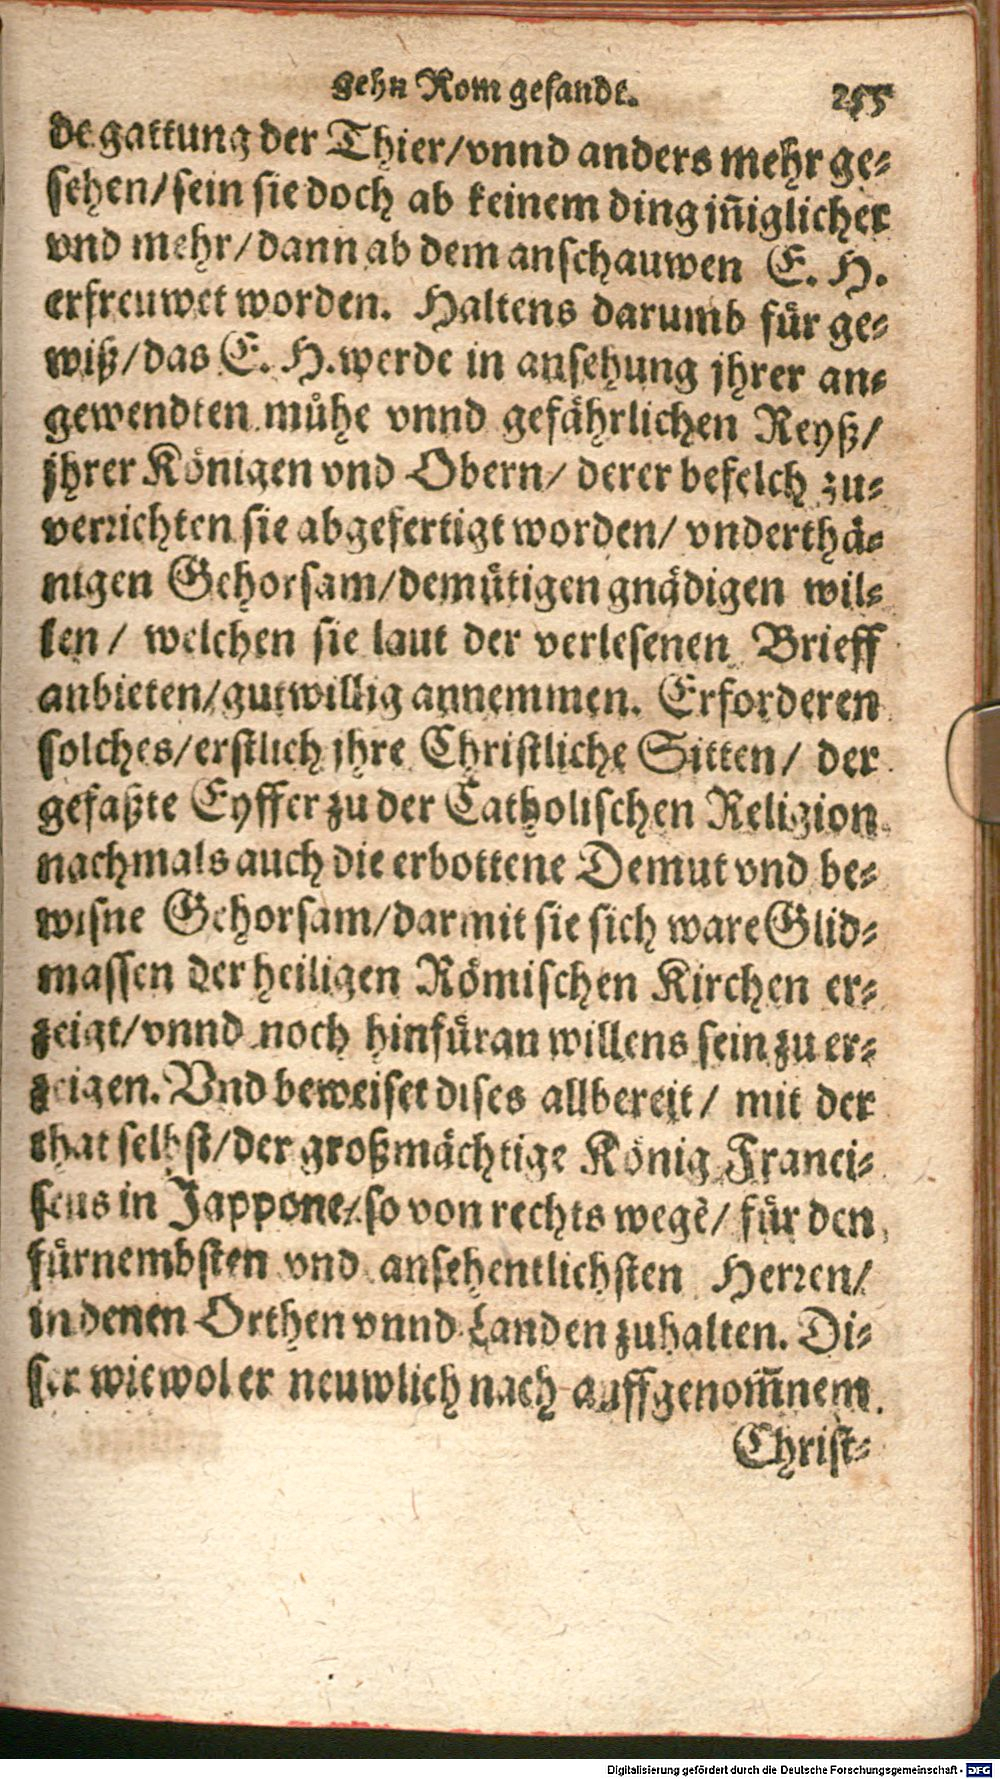 gehn Rom gesandt. 255
de gattung der Thier/vnnd anders mehr ge⸗
sehen/sein sie doch ab keinem ding jñiglicher
vnd mehr/dann ab dem anschauwen E. H.
erfreuwet worden. Haltens darumb für ge⸗
wiß/das E. H. werde in ansehung jhrer an⸗
gewendten mühe vnnd gefährlichen Reyß/
jhrer Königen vnd Obern/ derer befelch zu⸗
verrichten sie abgefertigt worden/ vnderthä⸗
nigen Gehorsam/demütigen gnädigen wil⸗
len/ welchen sie laut der verlesenen Brieff
anbieten/gutwillig annemmen. Erforderen
solches/erstlich jhre Christliche Sitten/ der
gefaßte Eyffer zu der Catholischen Religion
nachmals auch die erbottene Demut vnd be⸗
wisne Gehorsam/darmit sie sich ware Glid⸗
massen der heiligen Römischen Kirchen er⸗
zeigt/vnnd noch hinfüran willens sein zu er⸗
zeigen. Vnd beweiset dises allbereit/ mit der
that selbst/der großmächtige König Franci⸗
scus in Jappone/so von rechts wegẽ/ für den
fürnembsten vnd ansehentlichsten Herren/
in denen Orthen vnnd Landen zuhalten. Di⸗
ser wiewol er neuwlich nach auffgenom̃nem
Christ⸗
Digitalisierung gefördert durch die Deutsche Forschungsgemeinschaft - DFG